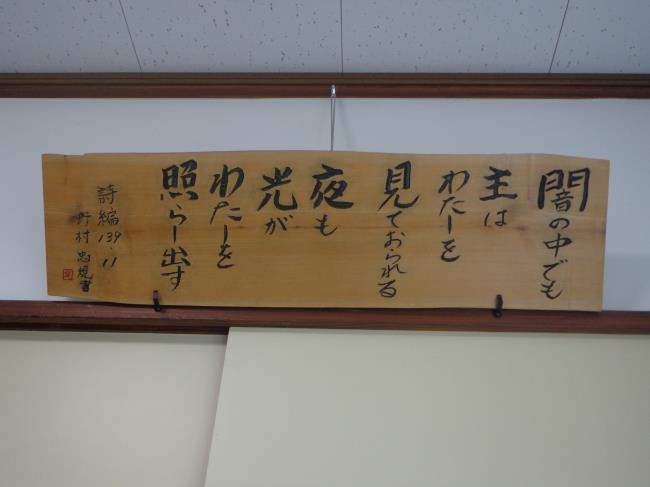 闇の中でも
主は
わたしを
見ておられる
夜も
光が
わたしを
照らし出す
詩編139・11
野村忠規書